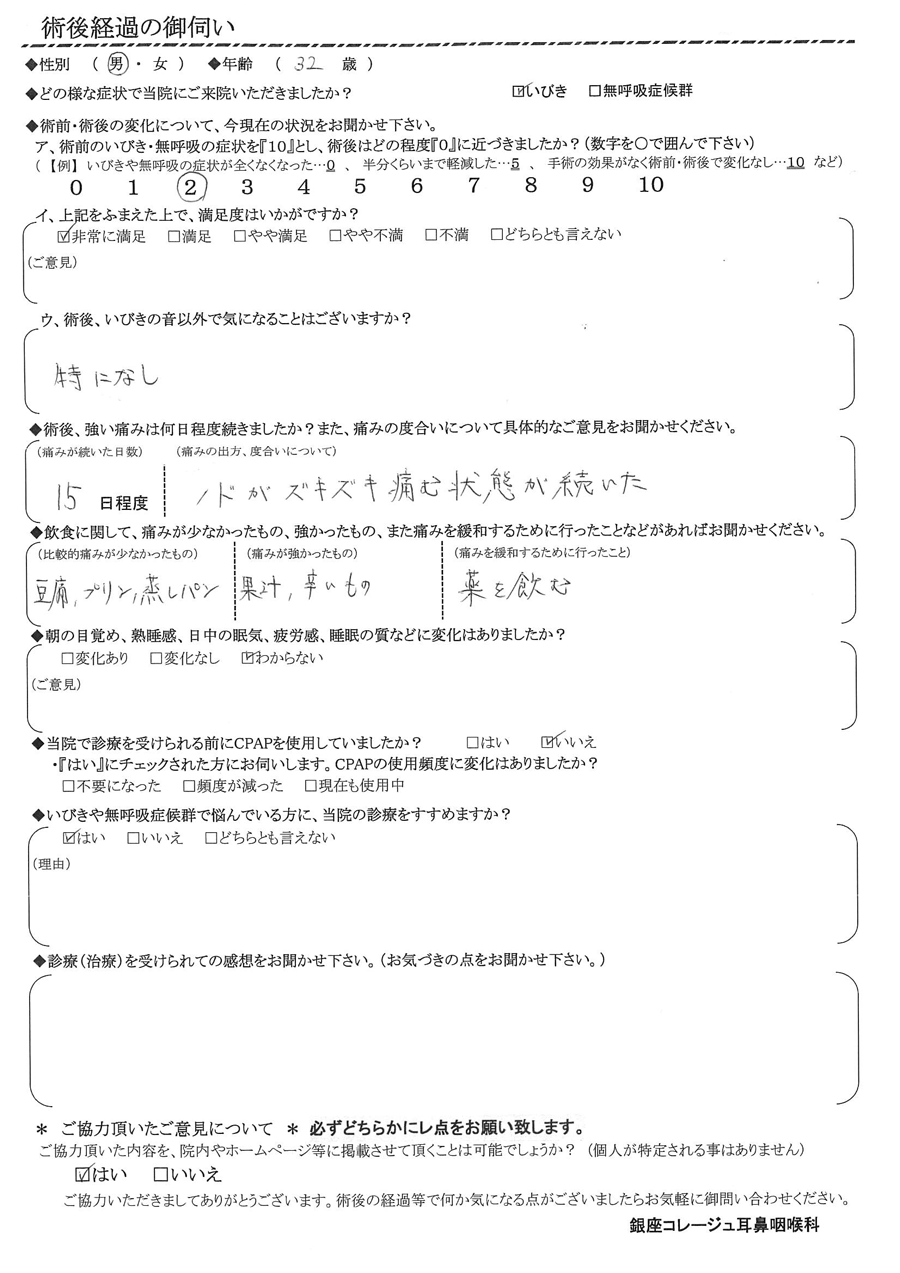 術後経過の御伺い
◆性別 ( 男 ・ 女 ) ◆年齢 ( 32 歳 )
◆どの様な症状で当院にご来院いただきましたか? ☑いびき □無呼吸症候群
◆術前・術後の変化について、今現在の状況をお聞かせ下さい。
ア、術前のいびき・無呼吸の症状を『10』とし、術後はどの程度『0』に近づきましたか?(数字を○で囲んで下さい)
(【例】いびきや無呼吸の症状が全くなくなった…0 、 半分くらいまで軽減した…5 、 手術の効果がなく術前・術後で変化なし…10 など)
0 1 2 3 4 5 6 7 8 9 10
イ、上記をふまえた上で、満足度はいかがですか?
☑非常に満足 □満足 □やや満足 □やや不満 □不満 □どちらとも言えない
(ご意見)
ウ、術後、いびきの音以外で気になることはございますか?
特になし
◆術後、強い痛みは何日程度続きましたか?また、痛みの度合いについて具体的なご意見をお聞かせください。
(痛みが続いた日数) (痛みの出方、度合いについて)
15 日程度 ノドがズキズキ痛む状態が続いた
◆飲食に関して、痛みが少なかったもの、強かったもの、また痛みを緩和するために行ったことなどがあればお聞かせください。
(比較的痛みが少なかったもの) (痛みが強かったもの) (痛みを緩和するために行ったこと)
豆腐,プリン,蒸しパン 果汁,辛いもの 薬を飲む
◆朝の目覚め、熟睡感、日中の眠気、疲労感、睡眠の質などに変化はありましたか?
□変化あり □変化なし ☑わからない
(ご意見)
◆当院で診療を受けられる前にCPAPを使用していましたか? □はい ☑いいえ
・『はい』にチェックされた方にお伺いします。CPAPの使用頻度に変化はありましたか?
□不要になった □頻度が減った □現在も使用中
◆いびきや無呼吸症候群で悩んでいる方に、当院の診療をすすめますか?
☑はい □いいえ □どちらとも言えない
(理由)
◆診療(治療)を受けられての感想をお聞かせ下さい。(お気づきの点をお聞かせ下さい。)
* ご協力頂いたご意見について * 必ずどちらかにレ点をお願い致します。
ご協力頂いた内容を、院内やホームページ等に掲載させて頂くことは可能でしょうか? (個人が特定される事はありません)
☑はい □いいえ
ご協力いただきましてありがとうございます。術後の経過等で何か気になる点がございましたらお気軽に御問い合わせください。
銀座コレージュ耳鼻咽喉科